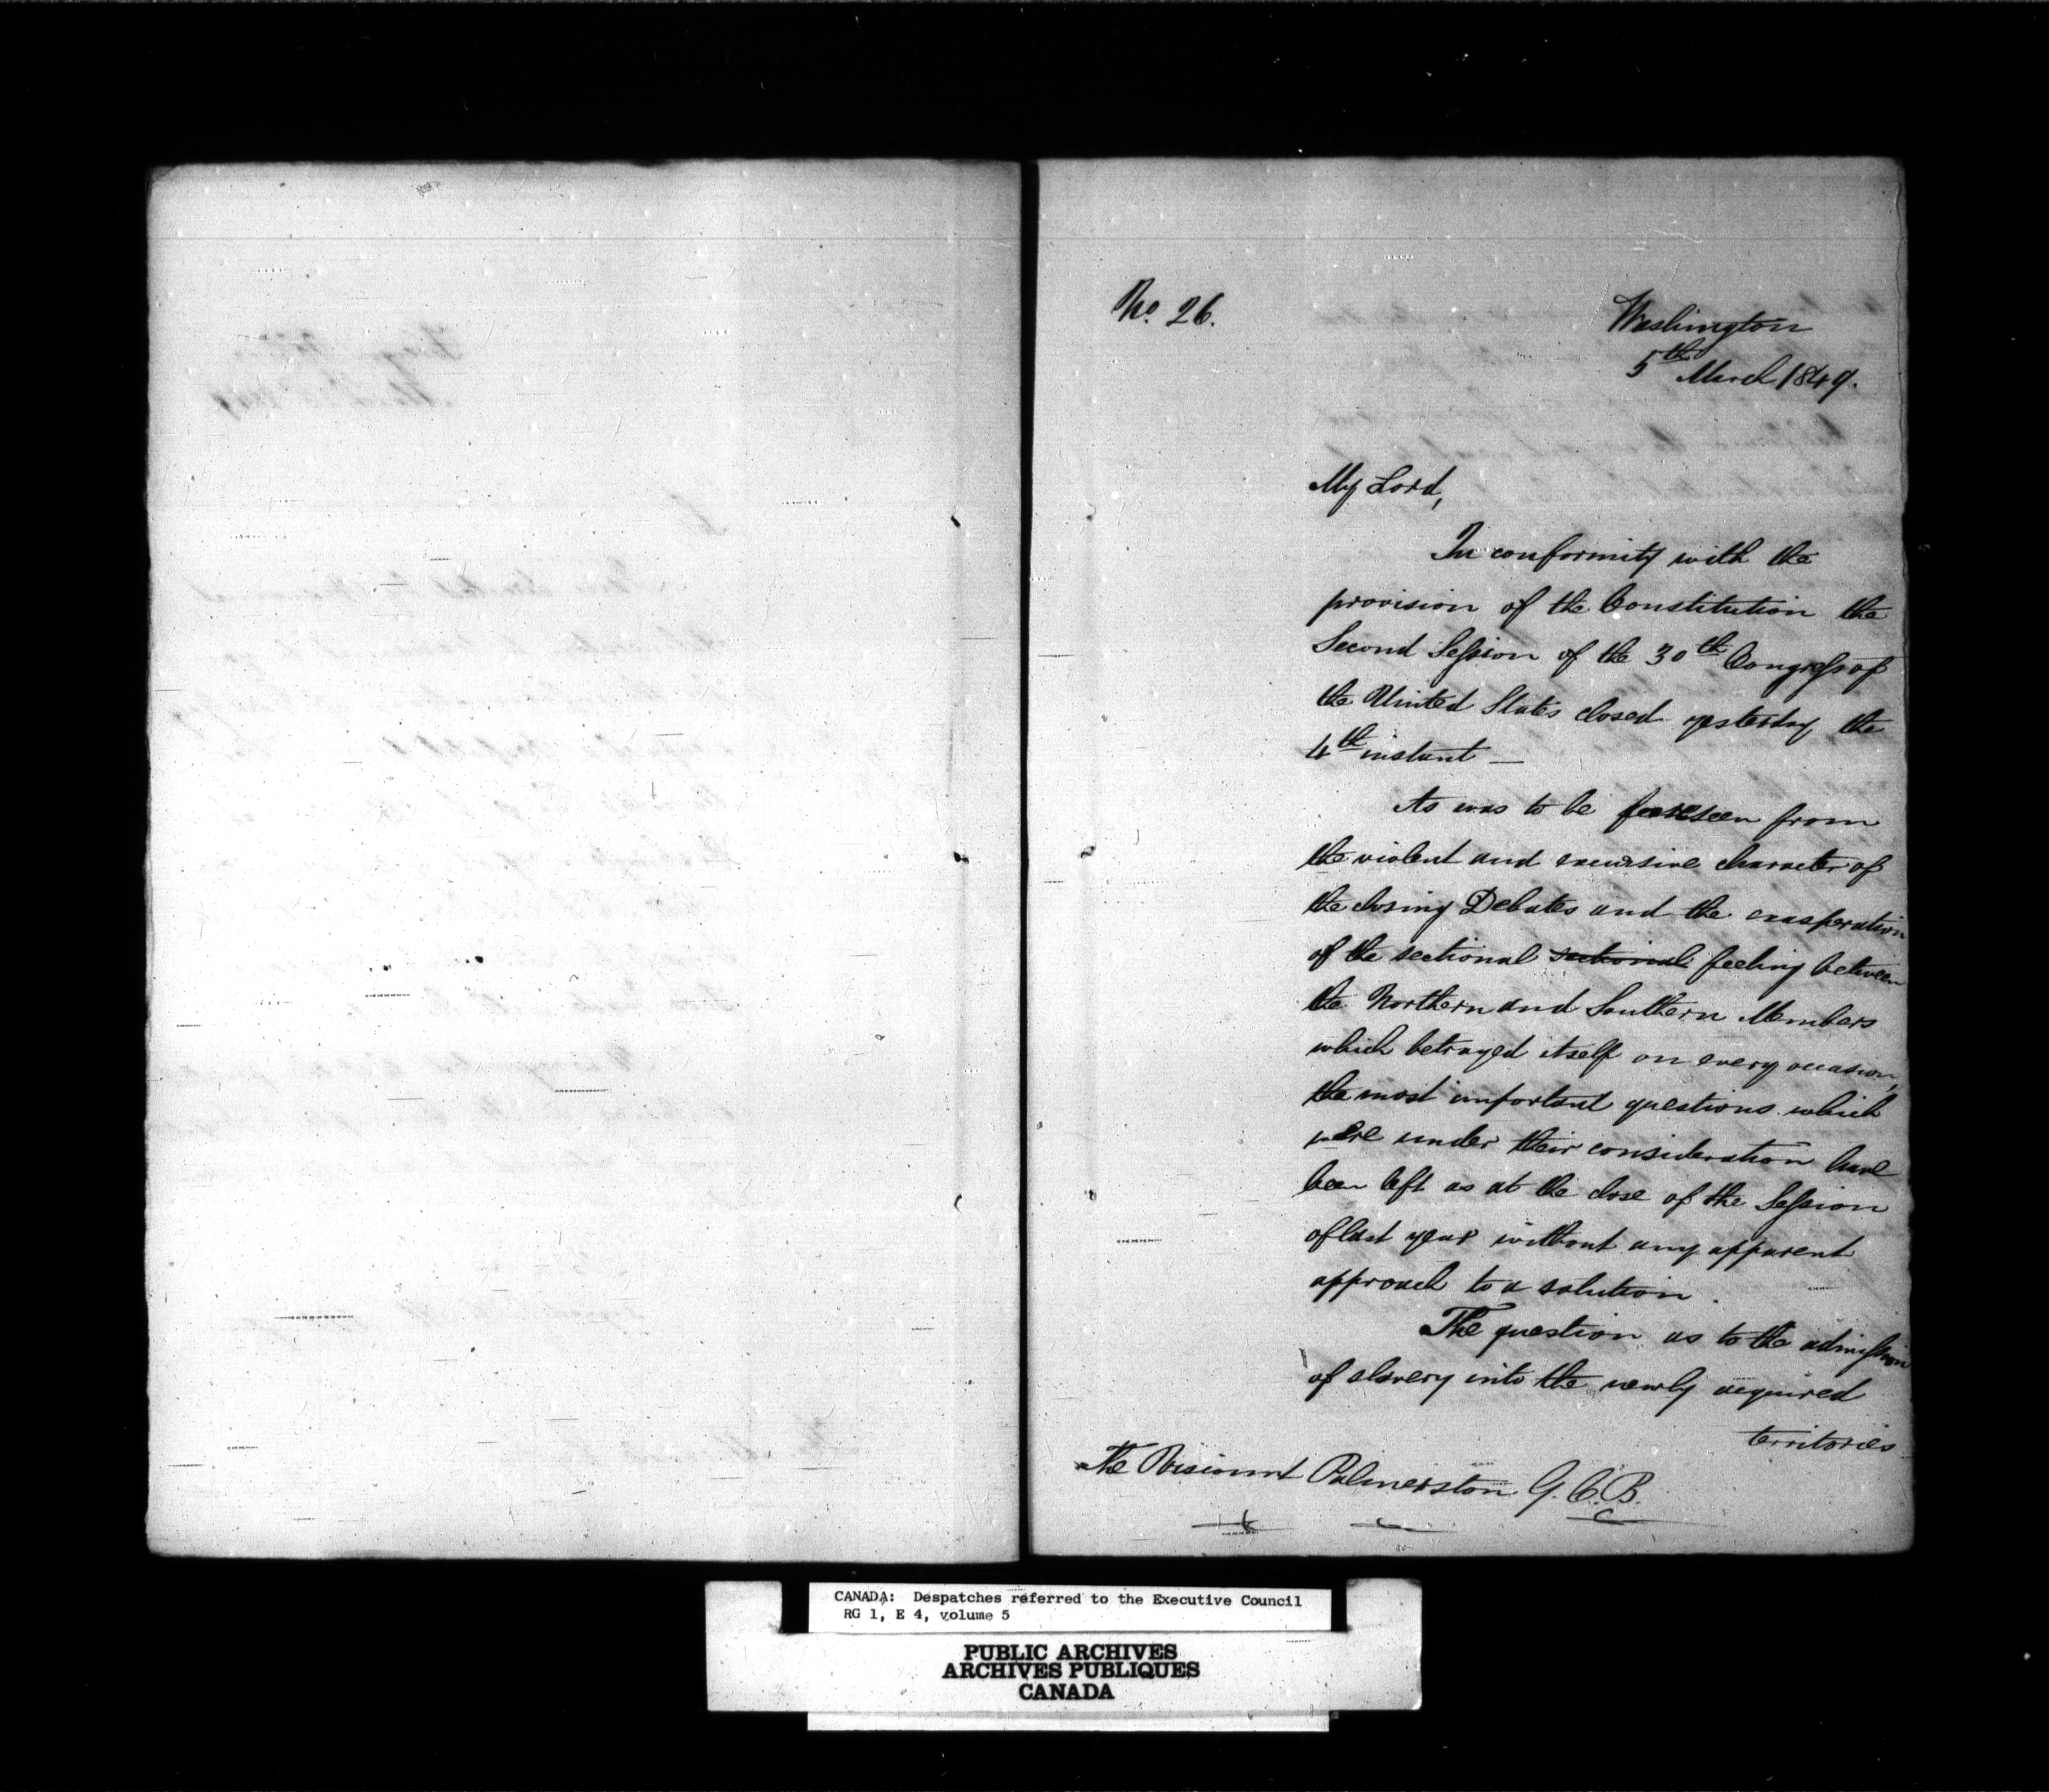 No. 26.
Washington
5th March 1849.
My Lord,
In conformity with the
provision of the Constitution the
Second Session of the 30th Congress of
the United States closed yesterday the
4th instant —
As was to be foreseen from
the violent and excursive character of
the closing Debates and the exasperation
of the sectional sectional feeling between
the Northern and Southern Members
which betrayed itself on every occasion,
the most important questions which
were under their consideration have
been left as at the close of the Session
of last year without any apparent
approach to a solution.
The question as to the admission
of slavery into the newly acquired
territories
The Viscount Palmerston G.C.B.
CANADA: Despatches referred to the Executive Council
RG 1, E 4, volume 5
PUBLIC ARCHIVES
ARCHIVES PUBLIQUES
CANADA